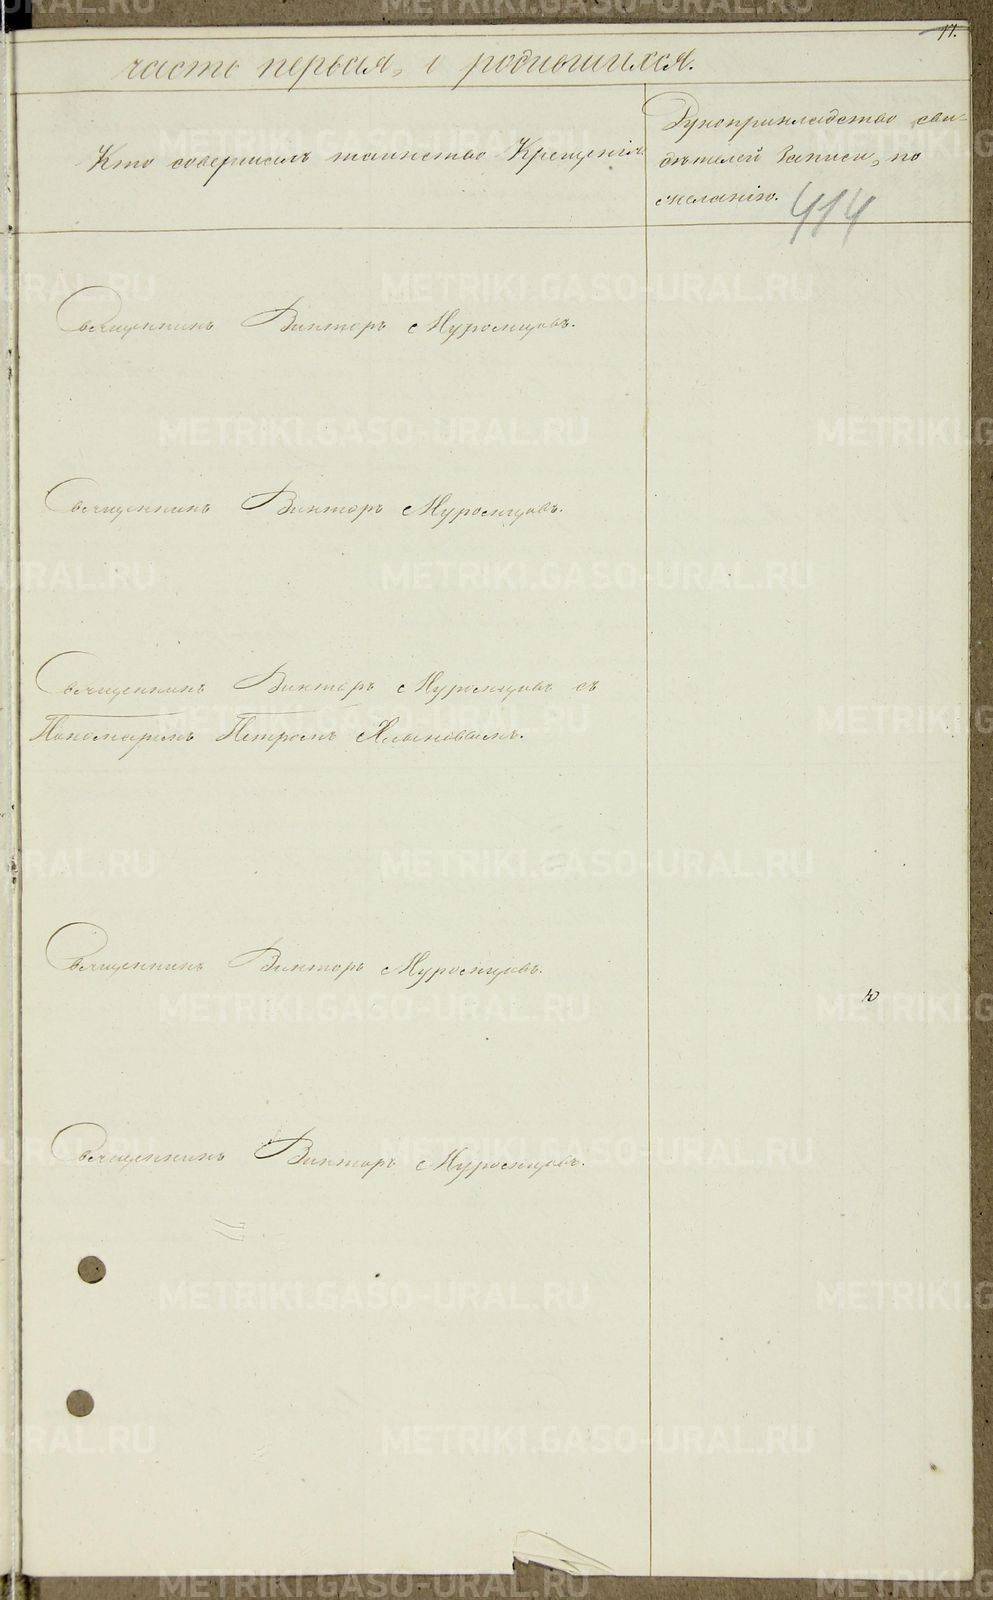 17.
часть первая, о родившихся.
Кто совершалъ таинство Крещенія.
Рукоприкладство сви-
дѣтелей записи, по
желанію.
414
Священникъ Викторъ Муромцовъ.
Священникъ Викторъ Муромцовъ.
Священникъ Викторъ Муромцовъ съ
Пономаремъ Петромъ
Священникъ Викторъ Муромцовъ.
Священникъ Викторъ Муромцовъ.
METRIKI.GASO-URAL.RU